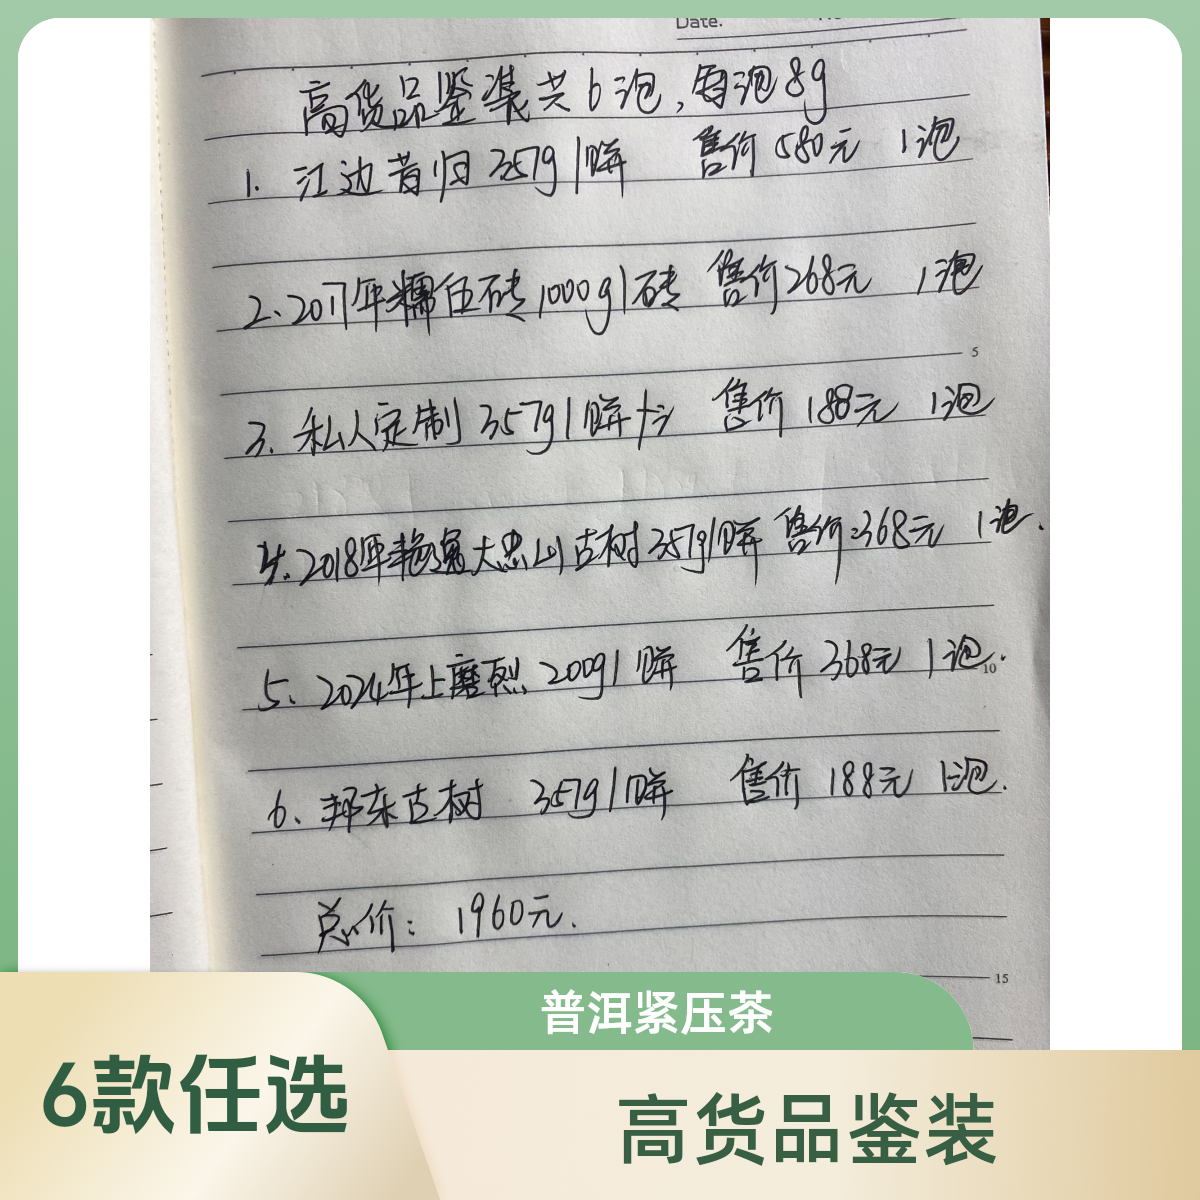 Date.
高货品鉴装共6泡,每泡8g
1. 江边昔归357g1饼 售价580元 1泡
2.2017年糯伍砖1000g1砖 售价268元 1泡
5
3. 私人定制 357g1饼 售价188元 1泡
4.2018年 大忠山古树357g1饼 售价368元 1泡.
5. 2024年上磨烈 200g1饼 售价368元 1泡.
10
6. 邦东古树 357g1饼 售价188元 1泡.
总价: 1960元.
15
普洱紧压茶
6款任选
高货品鉴装